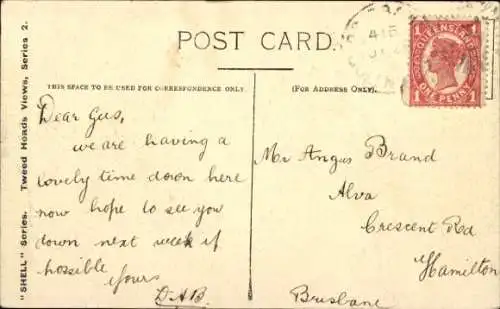 POST CARD.
QUEENSLAND
1 1
ONE PENNY
THIS SPACE TO BE USED FOR CORRESPONDENCE ONLY
(FOR ADDRESS ONLY).
"SHELL" Series. Tweed Heads Views, Series 2.
Dear Gus,
we are having a
lovely time down here
now hope to see you
down next week if
possible
Yours
D.A.B.
Mr Angus Brand
Alva
Crescent Rd
Hamilton
Brisbane